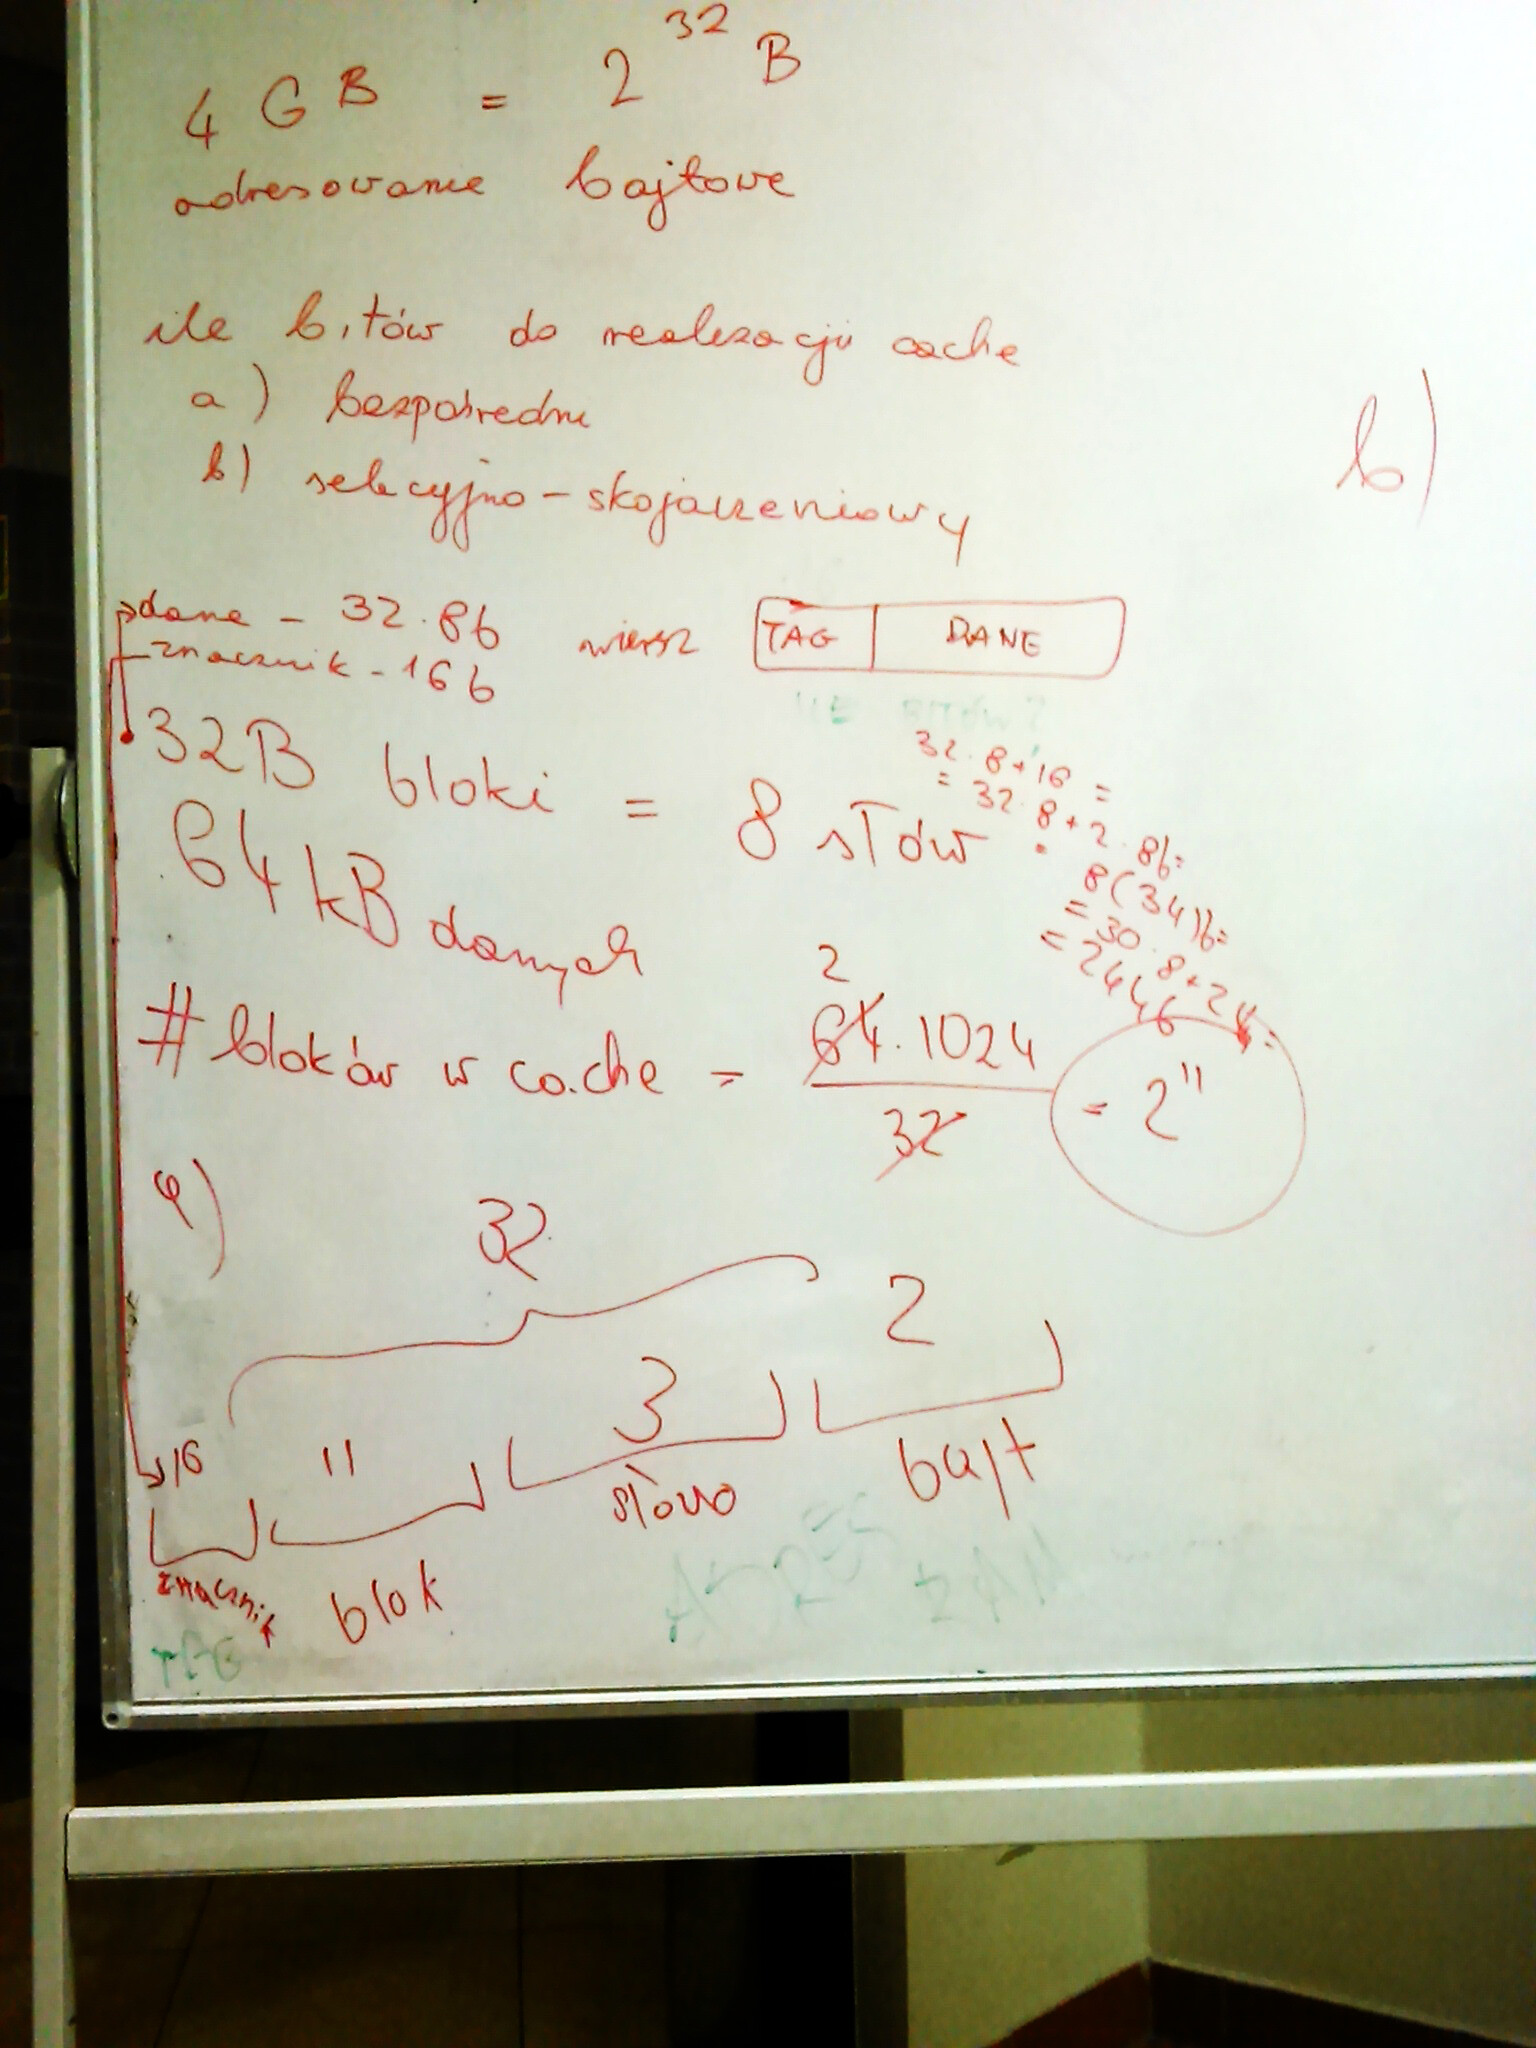 4 GB = 2^32 B
adresowanie bajtowe
ile bitów do realizacji cache
a) bezpośredni
b) selecyjno-skojarzeniowy
b)
dane - 32·8b
znacznik - 16b
wiersz
TAG | DANE
ILE BITÓW?
32B bloki = 8 słów
64 kB danych
32·8+16 =
= 32·8+2·8b=
= 8(34)b=
= 30·8+24=
= 244b
# bloków w cache = 64·1024 / 32 = 2^11
2
a)
32
16 11 3 2
znacznik blok słowo bajt
TAG